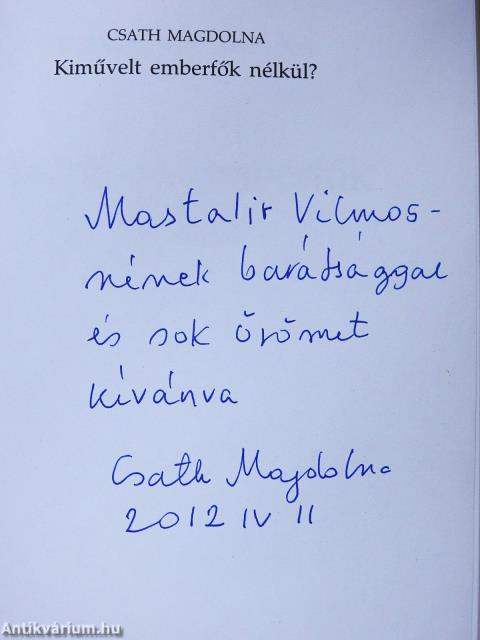 CSATH MAGDOLNA
Kiművelt emberfők nélkül?
Mastalir Vilmos-
nének barátsággal
és sok örömet
kívánva
Csath Magdolna
2012 IV 11
Antikvárium.hu